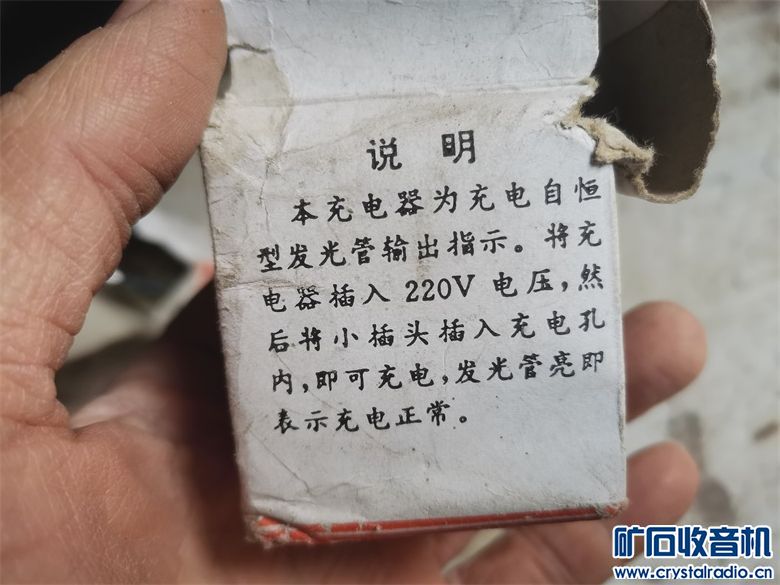 说明
本充电器为充电自恒
型发光管输出指示。将充
电器插入 220V 电压,然
后将小插头插入充电孔
内,即可充电,发光管亮即
表示充电正常。
矿石收音机
www.crystalradio.cn